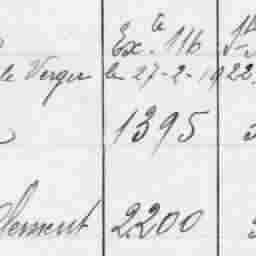 Exte 116
le Verger le 27-2-1922
1395
Clement 2200